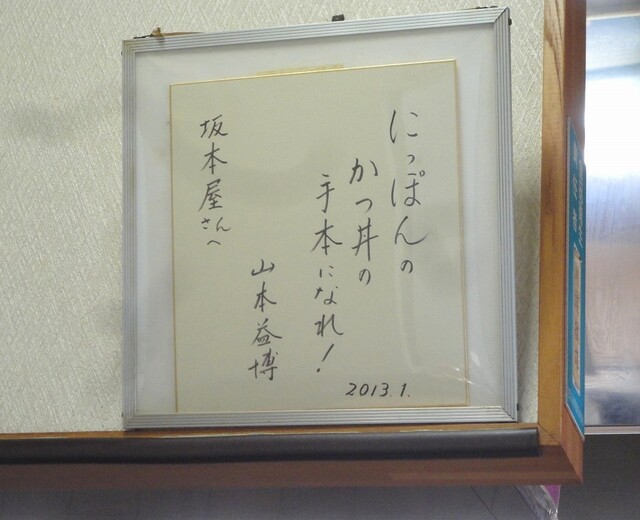 にっぽんの
かつ丼の
手本になれ！
山本益博
坂本屋さんへ
2013.1.